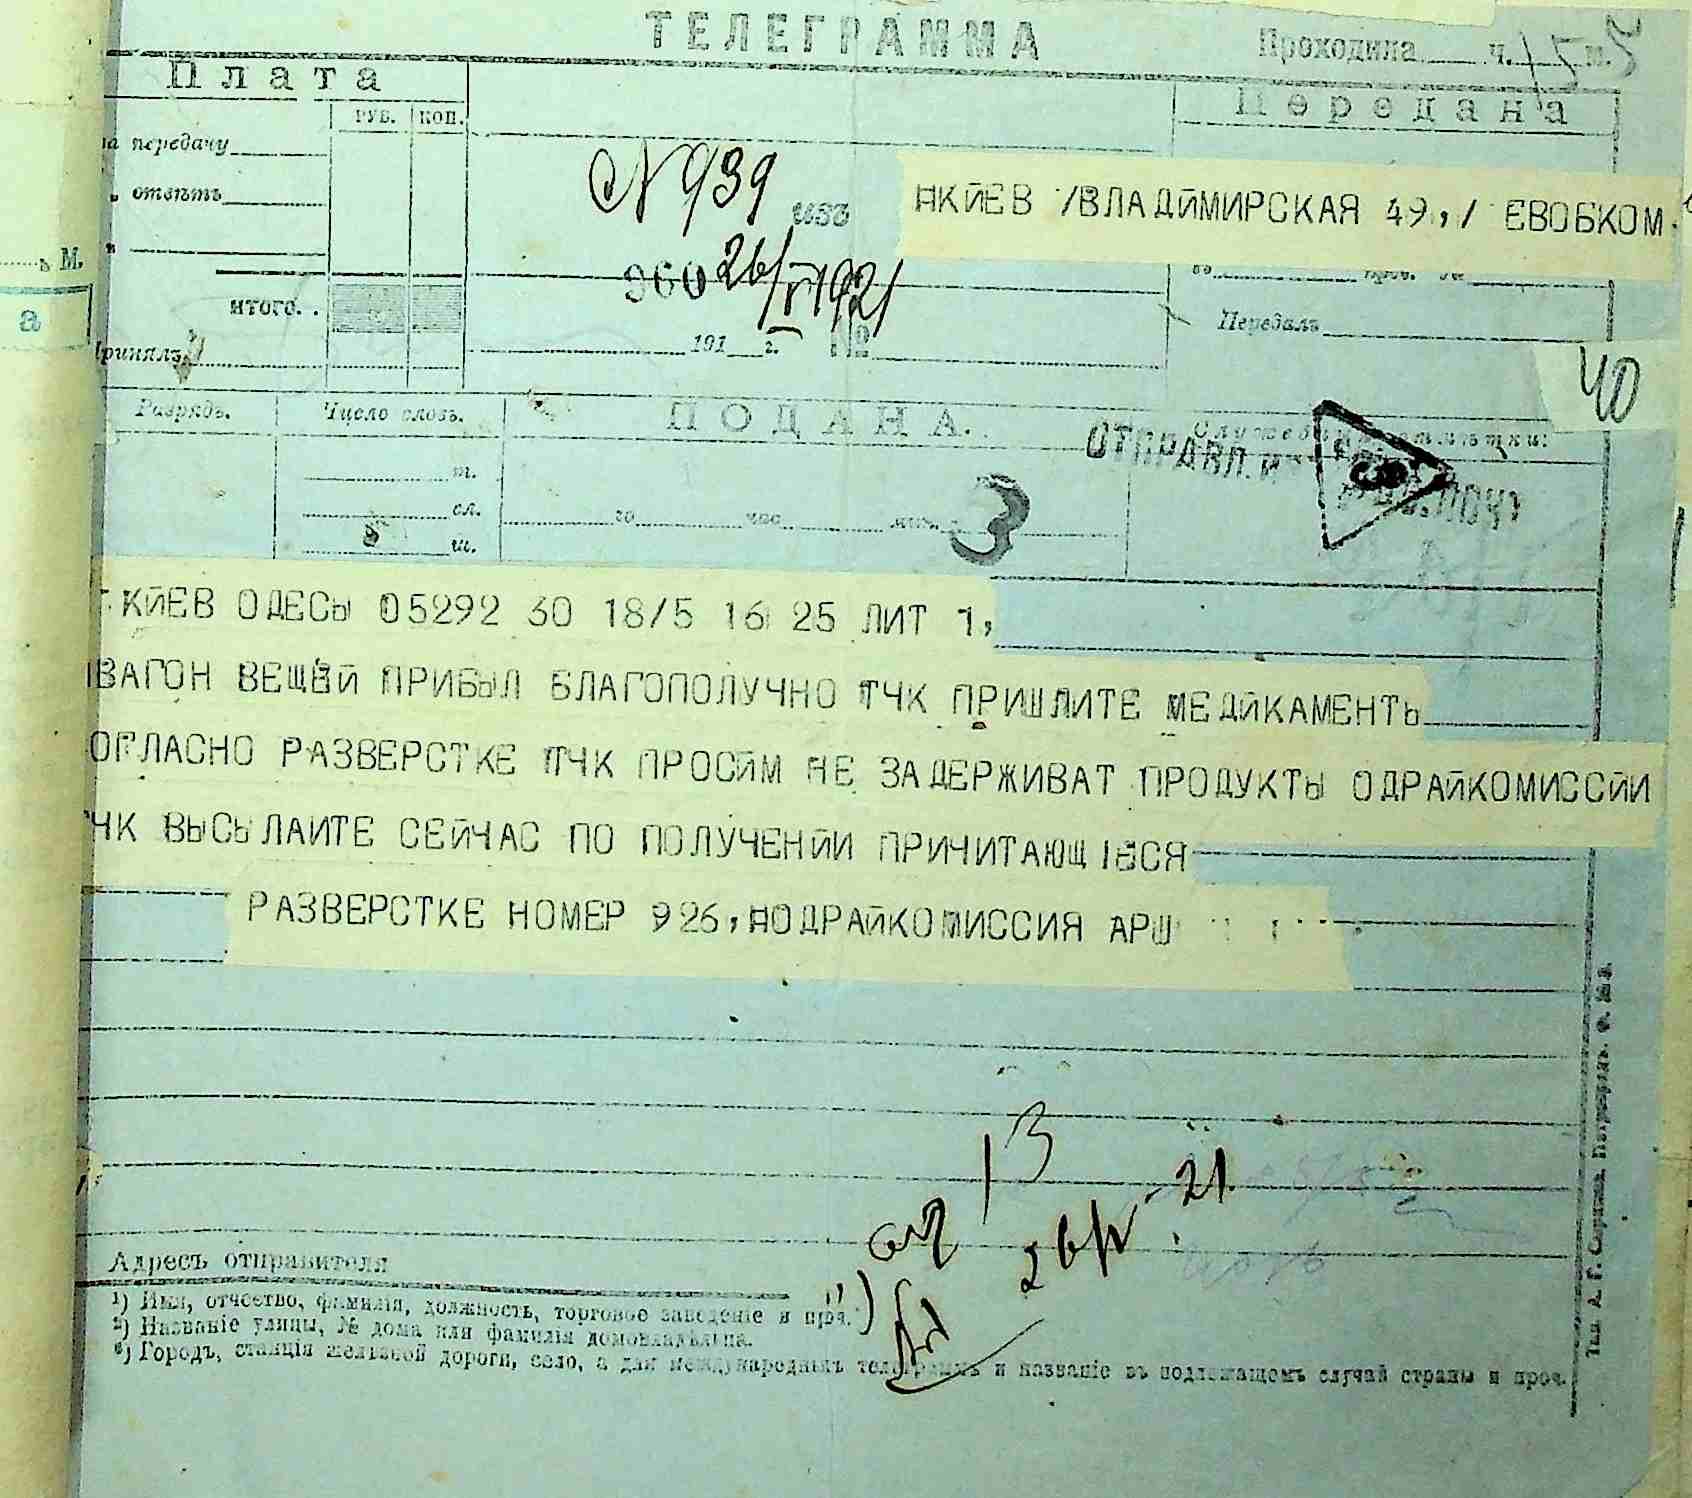 ТЕЛЕГРАММА
Проходила ч. м.
Плата
Передана
РУБ. КОП.
за передачу
„ отвѣтъ
№ 939
изъ
НКИЕВ /ВЛАДИМИРСКАЯ 49,/ ЕВОБКОМ.
М.
960 26/V 1921
итого. .
а
191 г. №
Передалъ
Принялъ
40
Разрядъ. Число словъ. ПОДАНА. Служебныя отмѣтки:
ОТПРАВЛ.
т.
3
сл.
го час. мин.
ш.
КИЕВ ОДЕСЫ 05292 30 18/5 16 25 ЛИТ 1,
ВАГОН ВЕЩЕЙ ПРИБЫЛ БЛАГОПОЛУЧНО ТЧК ПРИШЛИТЕ МЕДИКАМЕНТЫ
ОГЛАСНО РАЗВЕРСТКЕ ТЧК ПРОСИМ НЕ ЗАДЕРЖИВАТ ПРОДУКТЫ ОДРАЙКОМИССИИ
ЧК ВЫСЫЛАИТЕ СЕЙЧАС ПО ПОЛУЧЕНИИ ПРИЧИТАЮЩIЕСЯ
РАЗВЕРСТКЕ НОМЕР 926, НОДРАЙКОМИССИЯ АРШ
13
26/V - 21.
Адресъ отправителя
¹) Имя, отчество, фамилія, должность, торговое заведеніе и проч.
²) Названіе улицы, № дома или фамилія домовладѣльца.
³) Городъ, станція желѣзной дороги, село, а для международныхъ телеграммъ и названіе въ подлежащемъ случаѣ страны и проч.